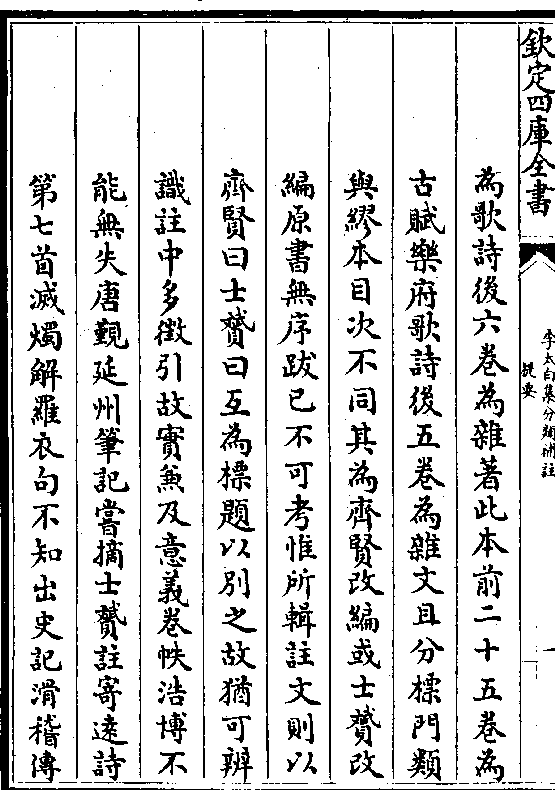 欽定四庫全書
李太白集分類補註
提要
為歌詩後六卷為雜著此本前二十五卷為
古賦樂府歌詩後五卷為雜文且分標門類
與繆本目次不同其為齊賢改編或士贇改
編原書無序跋已不可考惟所輯註文則以
齊賢曰士贇曰互為標題以別之故猶可辨
識註中多徵引故實兼及意義卷帙浩博不
能無失唐覲延州筆記嘗摘士贇註寄遠詩
第七首滅燭解羅衣句不知出史記滑稽傳